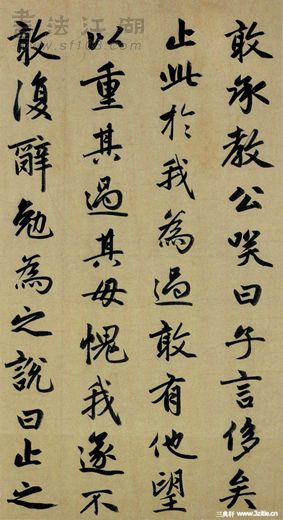 敢承教公咲曰子言侈矣
止此於我為過敢有他望
以重其過其毋愧我遂不
敢復辭勉為之說曰止之
書法江湖
www.sf108.com
www.3zitie.cn